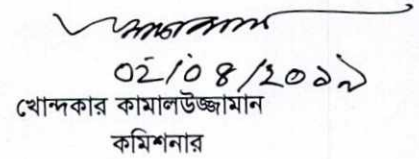 ০২/০৪/২০১৯
খোন্দকার কামালউজ্জামান
কমিশনার